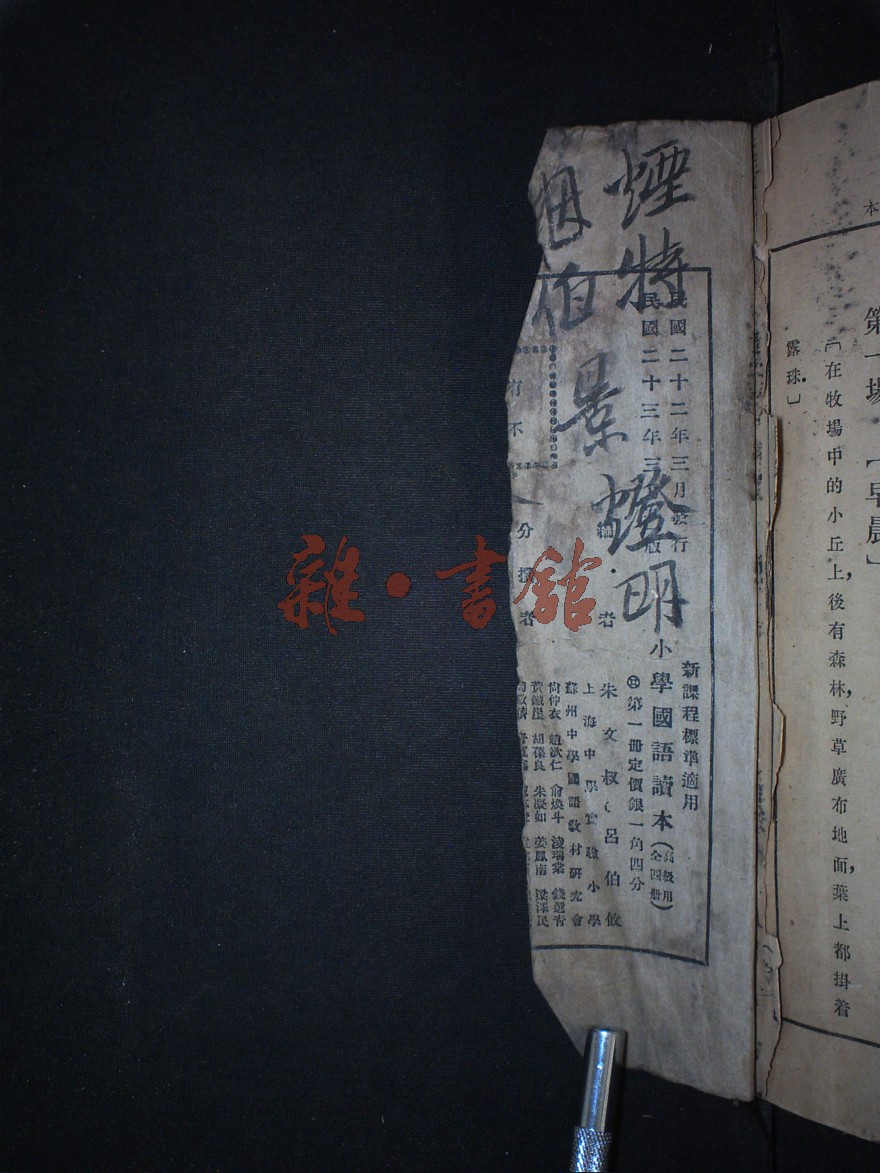 本
第一場
早晨﹞
﹝在牧場中的小丘上，後有森林，野草廣布地面，葉上都掛着
露珠﹞
煙特景燈明
伯
民國二十二年三月發行
民國二十三年三
版
新課程標準適用
小學國語讀本（高級用全四册）
第一册定價銀一角四分
編者
朱文叔 呂伯攸
上海中學實驗小學
蘇州中學國語教材研究會
分撰者
尙仲衣 趙欲仁 俞煥斗 淩瑞棻 錢選靑
黃鐵崖 胡葆良 朱凝如 姜鳳南 梁澤民
有不
雜·書館